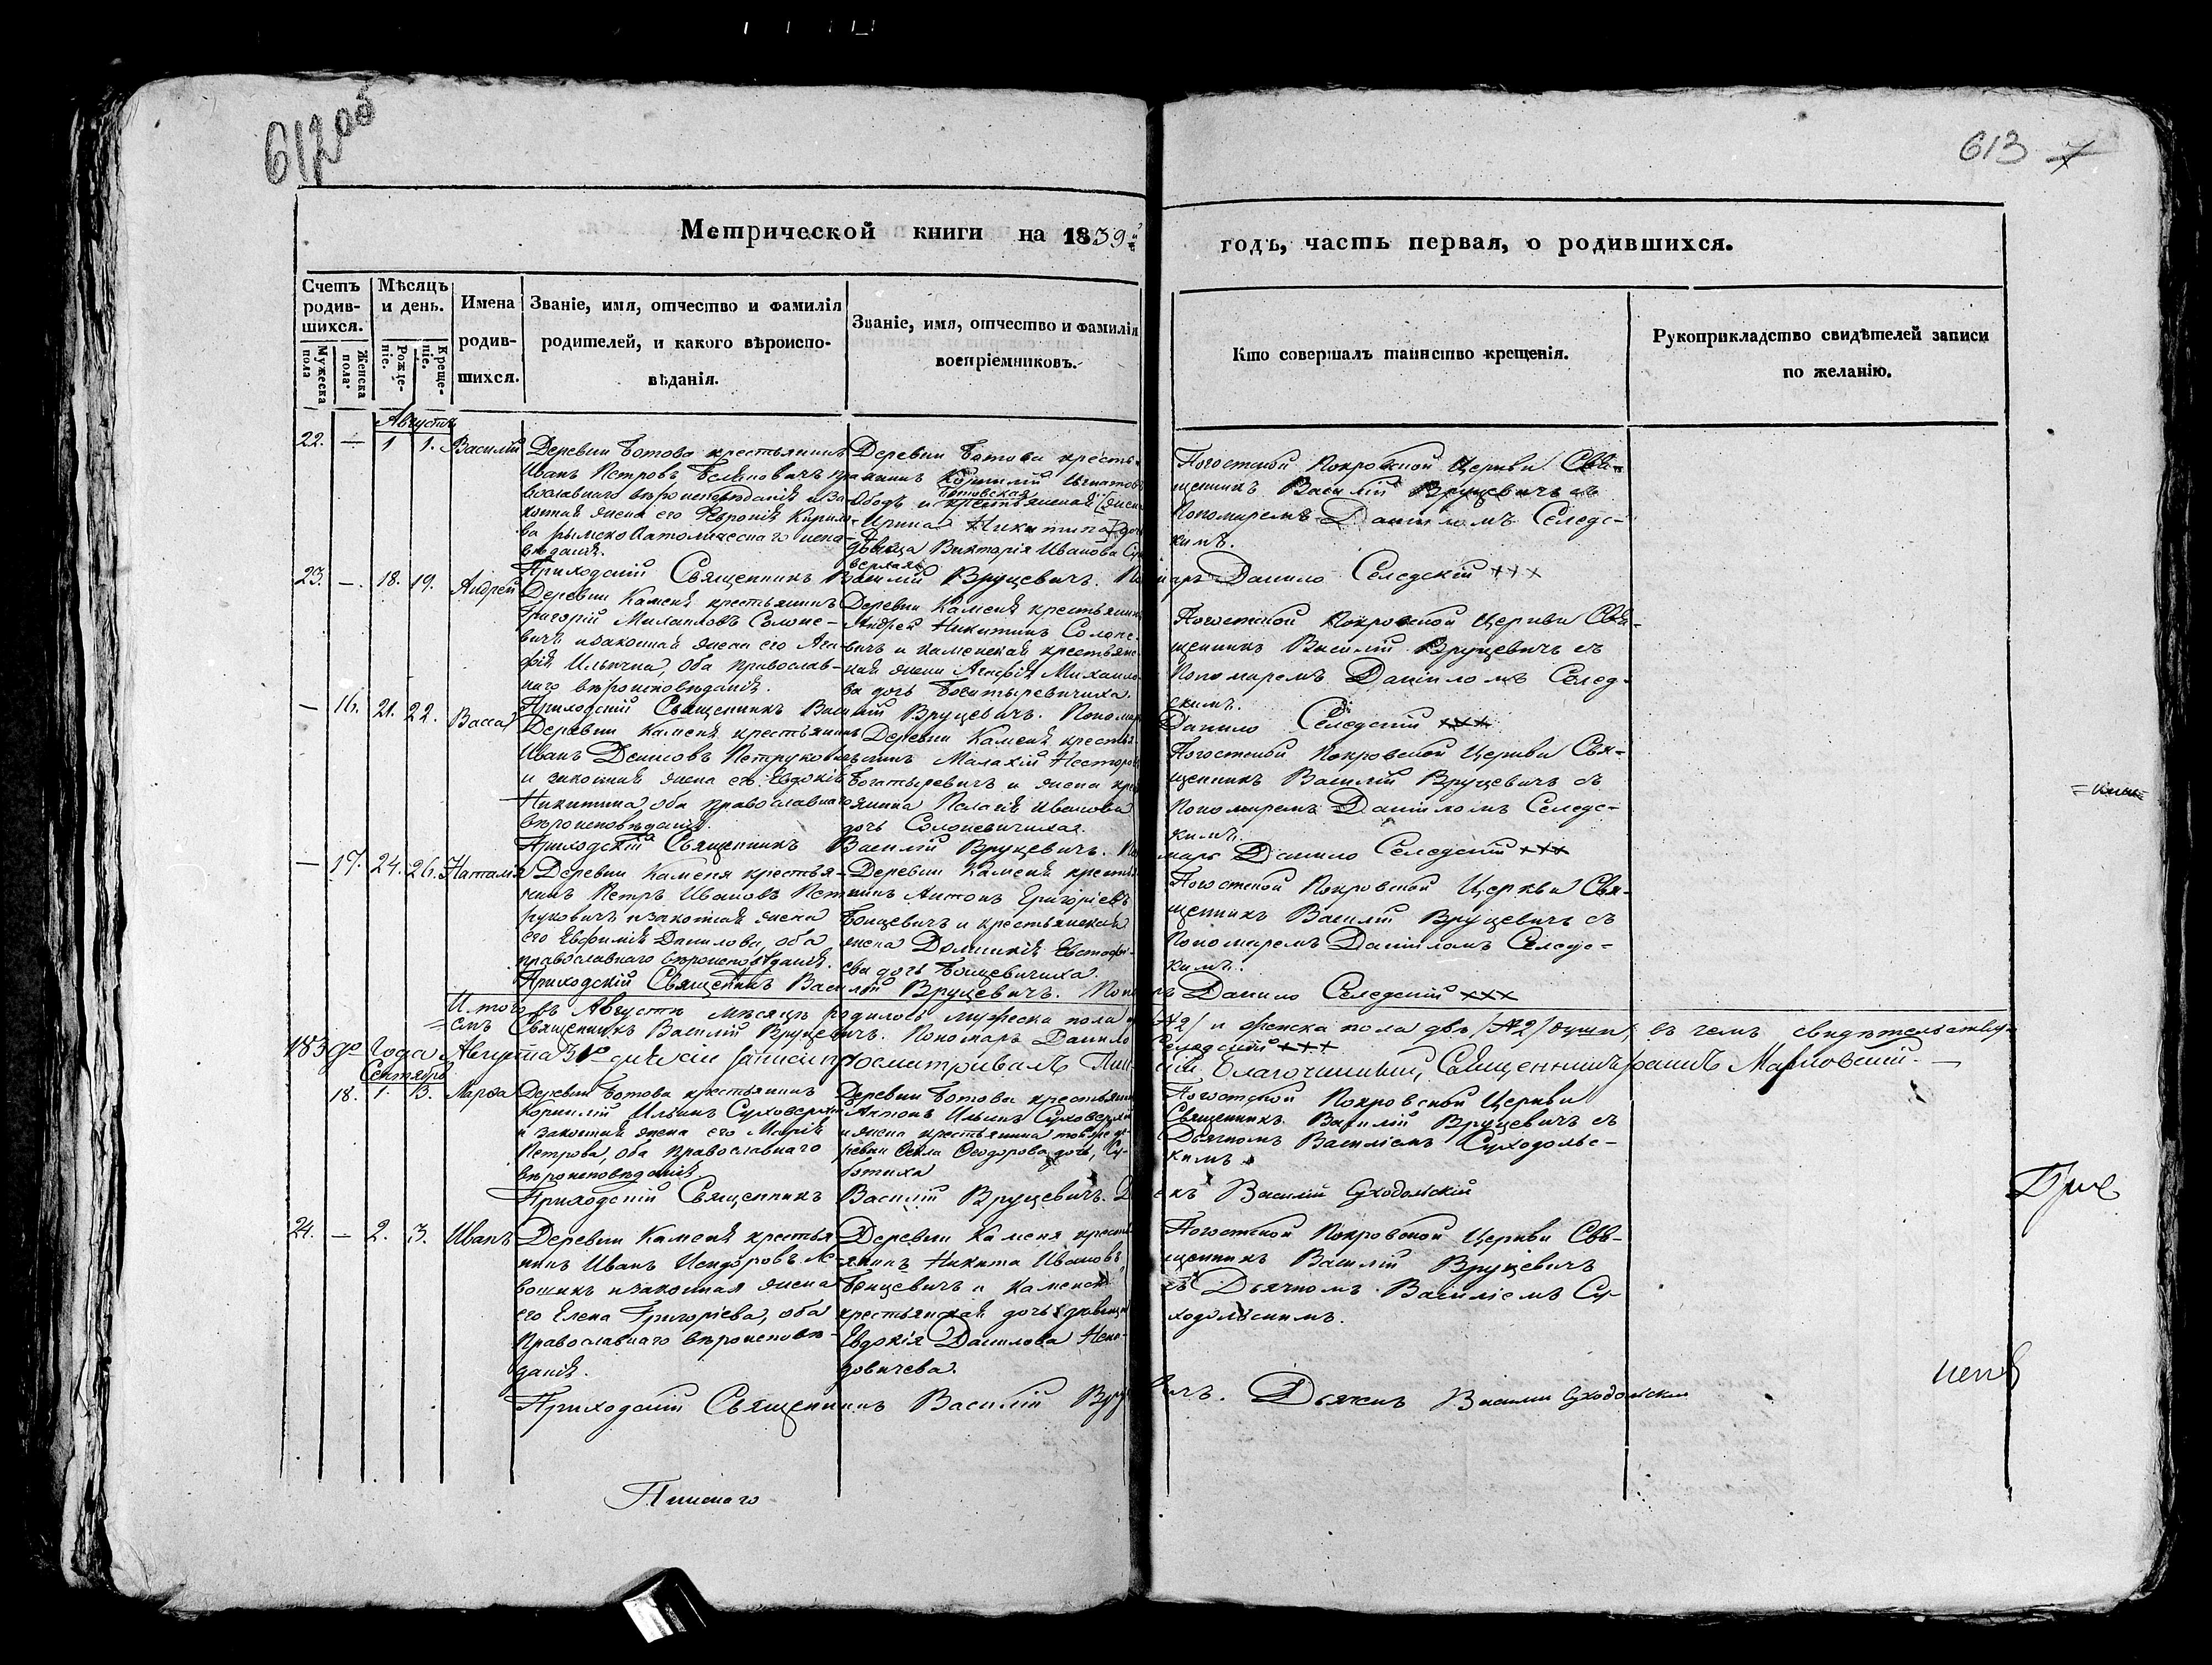 612 об
613 7
Метрической книги на 1839й
годъ, часть первая, о родившихся.
Счетъ родившихся.
Мужеска пола
Женска пола.
Мѣсяцъ и день.
Рожденіе.
Крещеніе.
Имена родившихся.
Званіе, имя, отчество и фамилія
родителей, и какого вѣроиспо-
вѣданія.
Званіе, имя, отчество и фамилія
воспріемниковъ.
Кто совершалъ таинство крещенія.
Рукоприкладство свидѣтелей записи
по желанію.
Августъ
22. — 1 1. Василій
Деревни Ботова крестьянинъ
Иванъ Петровъ
вославнаго вѣроисповѣданія и за-
конная жена его Февронія Кирило-
ва рымско католическаго испо-
вѣданія.
Деревни Ботова кресть-
янинъ Корнилій Игнатовъ
Ботовская
и крестьянская
Ирина Никитина
дѣвица Викторія Иванова Су-
верхая
Погостской Покровской Церкви Свя-
щенникъ Василій Вруцевичъ съ
Пономаремъ Даніиломъ Селедс-
кимъ.
Приходскій Священникъ Василій Вруцевичъ. По марь Данило Селедскій +++
23. — 18. 19. Андрей
Деревни Каменя крестьянинъ
Григорій Михаиловъ Солоне-
вичъ и законная жена его Ага-
фія Ильична, оба православ-
наго вѣроисповѣданія.
Деревни Каменя крестьянинъ
Андрей Никитинъ Солоне-
вичъ и каменская крестьянс-
кая жена Агафія Михаило-
ва дочь Богатыревичиха.
Погостской Покровской Церкви Свя-
щенникъ Василій Вруцевичъ съ
Пономаремъ Даніиломъ Селед-
скимъ.
Приходскій Священникъ Василій Вруцевичъ. Пономарь Данило Селедскій +++
— 16. 21. 22. Васса
Деревни Каменя крестьянинъ
Иванъ Денисовъ Петруковичъ
и законная жена его Евдокія
Никитина оба православнаго
вѣроисповѣданія.
Деревни Каменя кресть-
янинъ Малахій Несторовъ
Богатыревичъ и жена крес
янина Пелагія Иванова
дочь Солоневичиха.
Погостской Покровской Церкви Свя-
щенникъ Василій Вруцевичъ съ
Пономаремъ Даніиломъ Селедс-
кимъ.
Приходскій Священникъ Василій Вруцевичъ. По марь Данило Селедскій +++
— 17. 24. 26. Наталія
Деревни Каменя крестья-
нинъ Петръ Ивановъ Пет-
руковичъ и законная жена
его Евфимія Данилова, оба
православнаго вѣроисповѣданія.
Деревни Каменя крестья
нинъ Антонъ Григоріевъ
Бонцевичъ и крестьянская
жена Домникія Евстафі-
ева дочь Бонцевичиха.
Погостской Покровской Церкви Свя-
щенникъ Василій Вруцевичъ съ
Пономаремъ Даніиломъ Селедс-
кимъ.
Приходскій Священникъ Василій Вруцевичъ. Поно рь Данило Селедскій +++
Итого въ Августѣ мѣсяцѣ родилось мужеска пола №2/ и женска пола двѣ /№2/ души, въ чемъ свидѣтельству-
емъ Священникъ Василій Вруцевичъ. Пономарь Данило Селедскій +++
1839го Года Августа 31го дня сіи записи просматривалъ Пин скій Благочинный, Священникъ Марковскій.
Сентябрь
18. 1. 3. Марѳа
Деревни Ботова крестьянинъ
Корнилій Ильинъ Суховерхій
и законная жена его Марія
Петрова, оба православнаго
вѣроисповѣданія
Деревни Ботова крестьянинъ
Антонъ Ильинъ Суховерхій
и жена крестьянина той же де-
ревни Ѳекла Ѳеодорова дочь,
Погостской Покровской Церкви
Священникъ Василій Вруцевичъ съ
Дьячкомъ Василіемъ Суходольс-
кимъ
Приходскій Священникъ Василій Вруцевичъ. Д екъ Василій Суходольскій
24. — 2. 3. Иванъ
Деревни Каменя крестья
нинъ Иванъ Исидоровъ Ле-
вошикъ и законная жена
его Елена Григоріева, оба
Православнаго вѣроисповѣ-
данія.
Деревни Каменя кресть
янинъ Никита Ивановъ
Бонцевичъ и Каменска
крестьянская дочь дѣвица
Евдокія Данилова
довичева.
Погостской Покровской Церкви Свя-
щенникъ Василій Вруцевичъ
съ Дьячкомъ Василіемъ Су-
ходольскимъ.
Приходскій Священникъ Василій Вруцевичъ. Дьячекъ Василій Суходольскій
Пинскаго